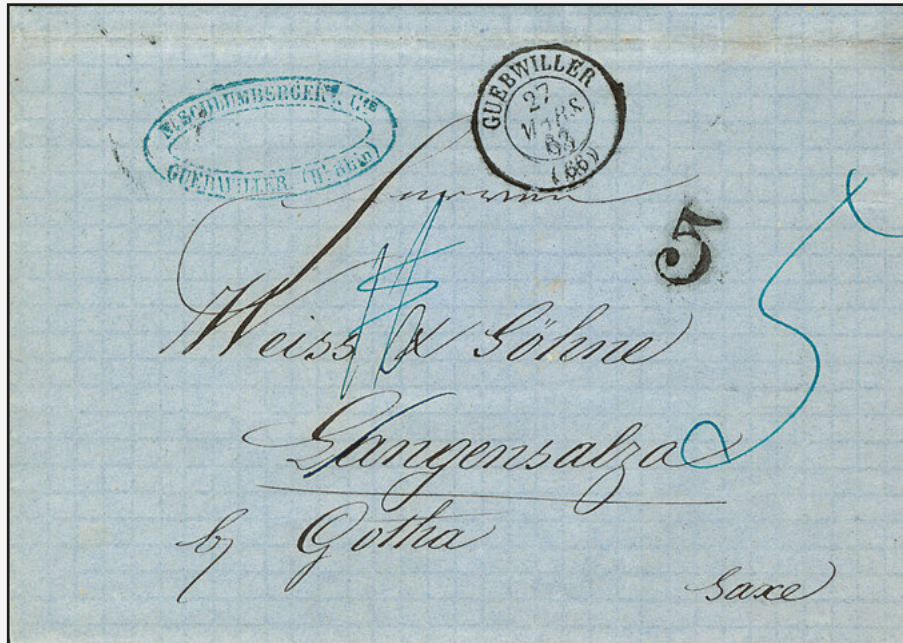 N. SCHLUMBERGER & Cie
GUEBWILLER. (Ht Rhin)
GUEBWILLER
27
MARS
63
(66)
Herren
5
5
Weiss & Söhne
Langensalza
by Gotha
Saxe